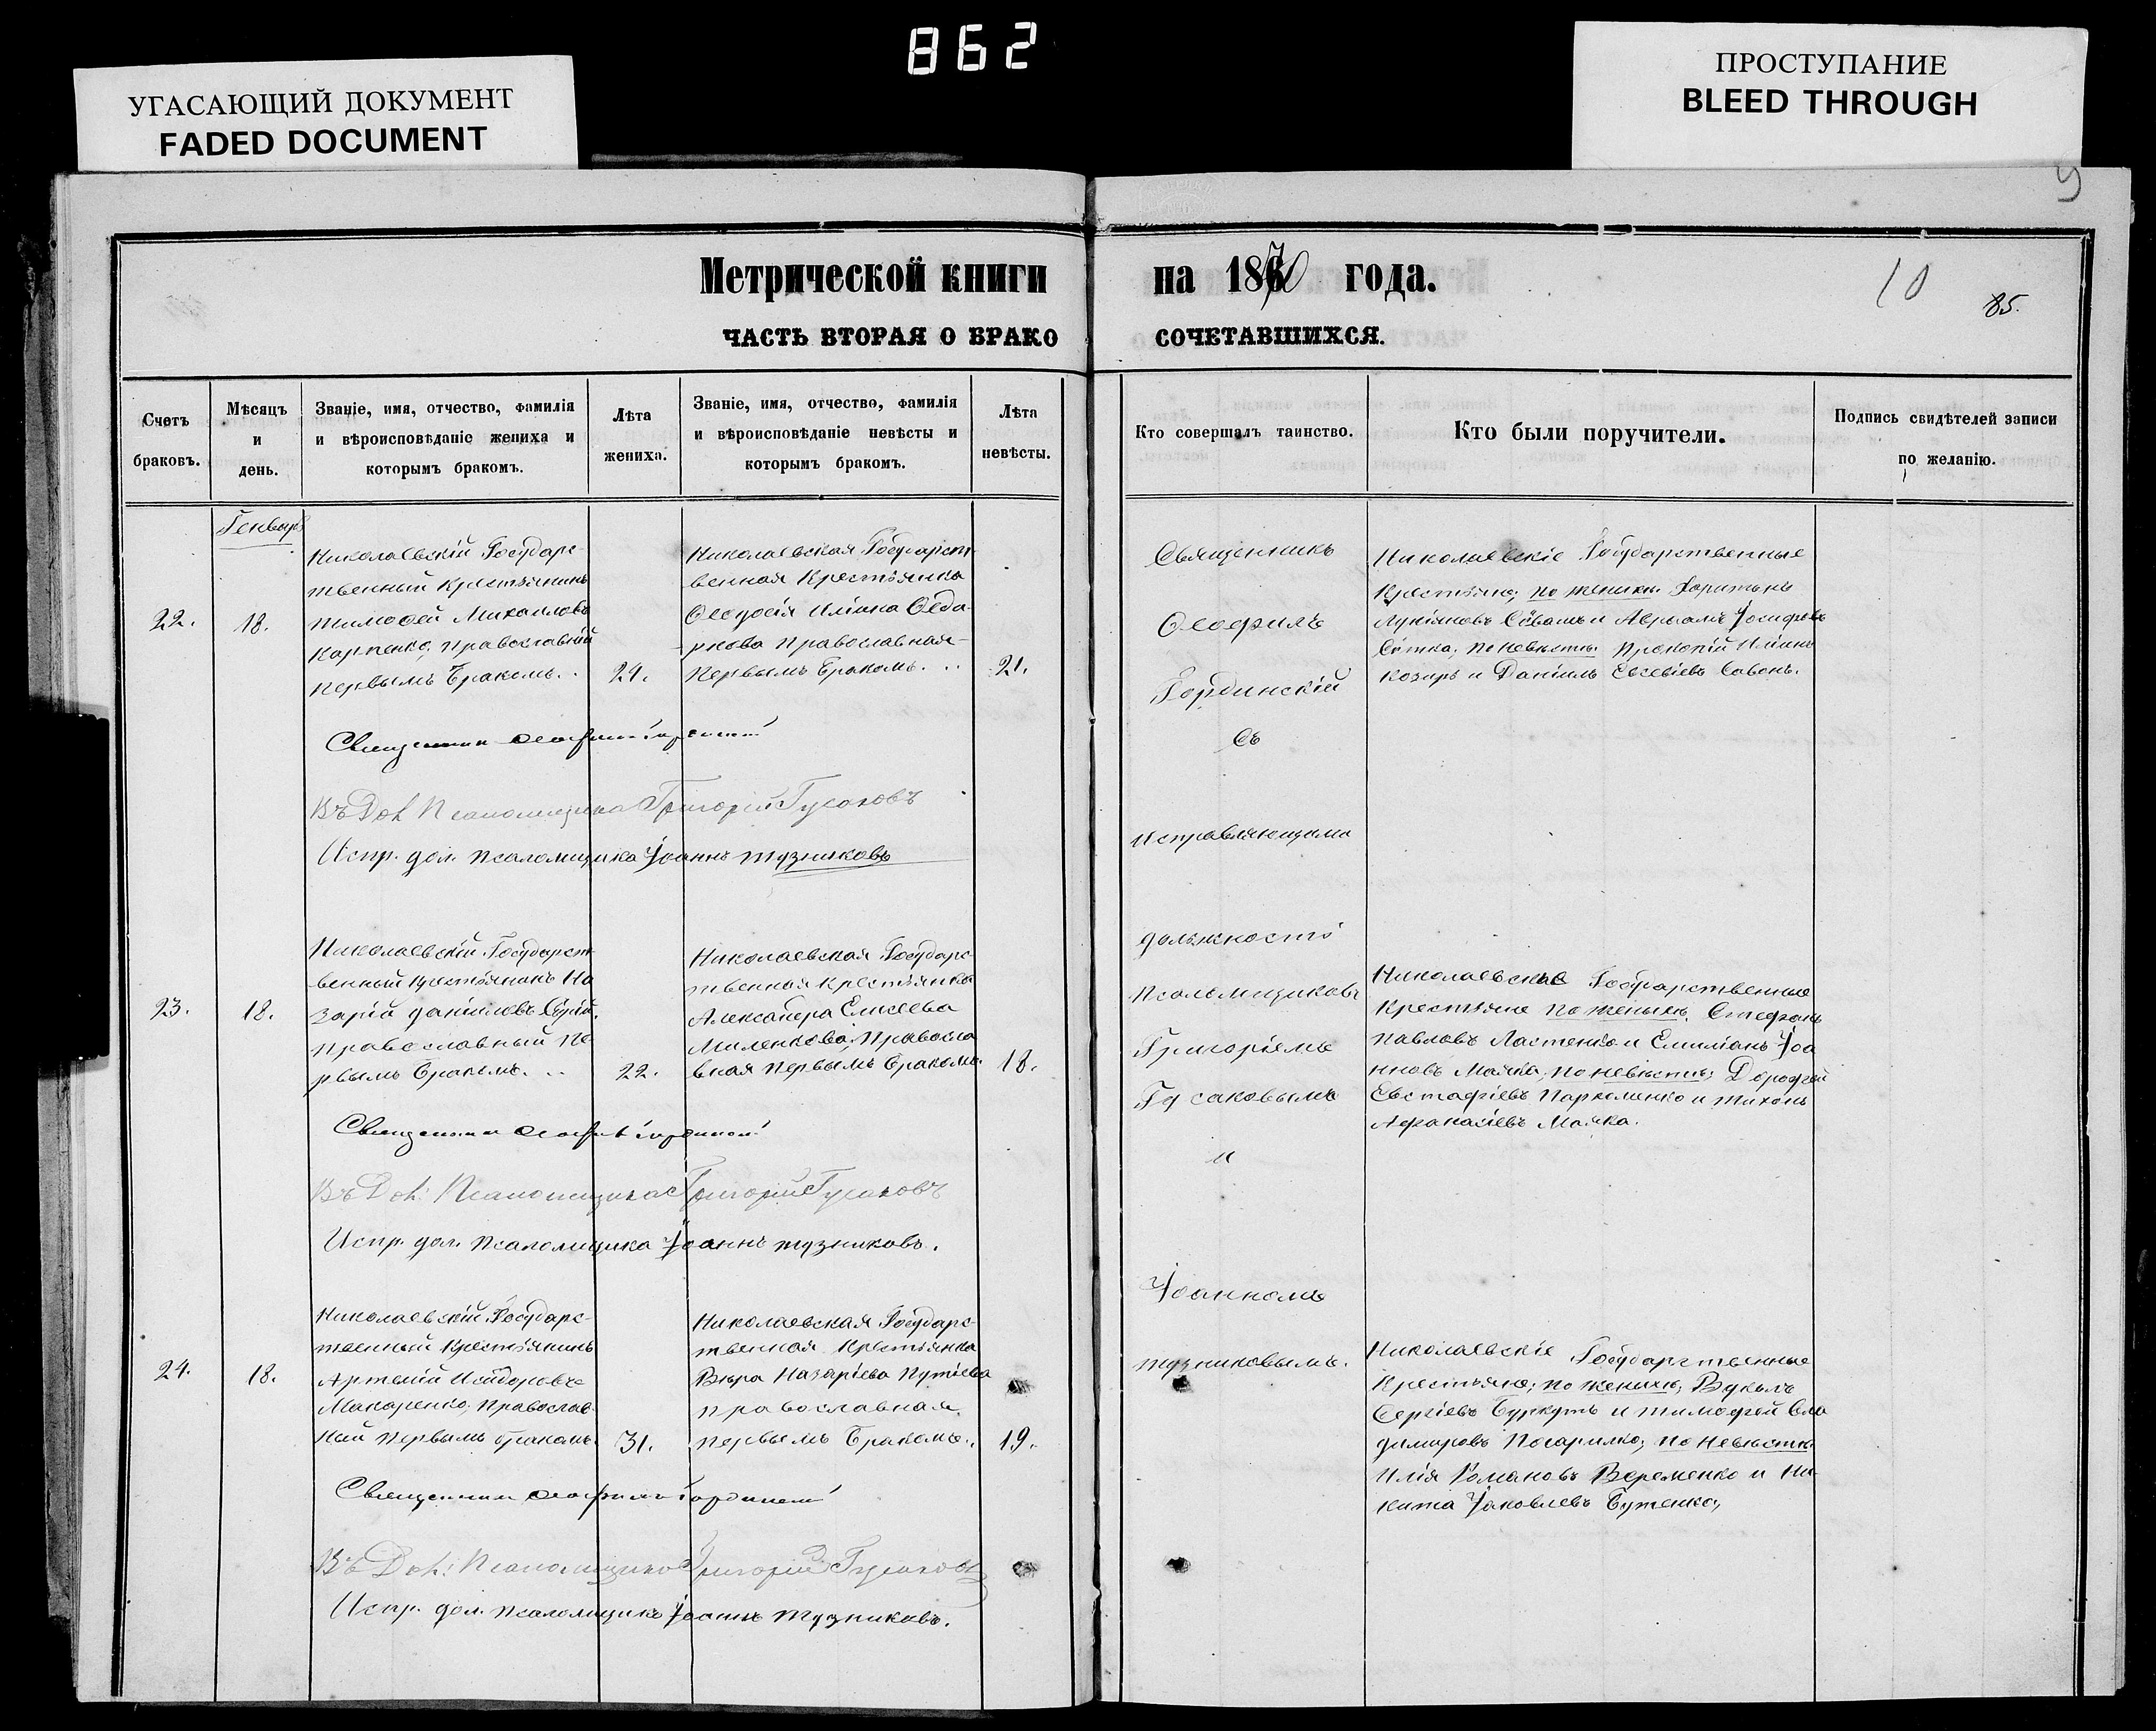 862
УГАСАЮЩИЙ ДОКУМЕНТ
FADED DOCUMENT
ПРОСТУПАНИЕ
BLEED THROUGH
Метрической книги на 1870 года.
10
85.
ЧАСТЬ ВТОРАЯ О БРАКОСОЧЕТАВШИХСЯ.
Счетъ
браковъ.
Мѣсяцъ
и
день.
Званіе, имя, отчество, фамилія
и вѣроисповѣданіе жениха и
которымъ бракомъ.
Лѣта
жениха.
Званіе, имя, отчество, фамилія
и вѣроисповѣданіе невѣсты и
которымъ бракомъ.
Лѣта
невѣсты.
Кто совершалъ таинство.
Кто были поручители.
Подпись свидѣтелей записи
по желанію.
Генварь
22.
18.
Николаевскій Государс-
твенный Крестьянинъ
Тимоѳей Михаиловъ
Карпенко, православный
первымъ бракомъ.
24.
Николаевская Государст-
венная Крестьянка
Ѳеодосія Иліина
православная
первымъ бракомъ.
21.
Священникъ
Ѳеофилъ
Гординскій
съ
Исправляющими
должность
Псаломщиковъ
Григоріемъ
Гусаковымъ
и
Іоанномъ
Тузниковымъ.
Николаевскіе Государственные
Крестьяне; по женихѣ: Харитонъ
Лукіановъ и Авраамъ Іосифовъ
по невѣстѣ: Прокопій Иліинъ
Козырь и Даніилъ Евсевіевъ Савонъ.
Священникъ Ѳеофилъ Гординскій
Въ Дол Псаломщика Григорій Гусаковъ
Испр. дол. псаломщика Іоаннъ Тузниковъ
23.
18.
Николаевскій Государст
венный Крестьянинъ На
зарій Даніиловъ
православный пе
рвымъ бракомъ.
22.
Николаевская Государс-
твенная Крестьянка
Александра Елисеева
Миленкова, Правосла
вная первымъ бракомъ.
18.
Николаевскіе Государственные
Крестьяне по женихѣ: Стефанъ
Павловъ Ластенко и Емиліанъ Іоа
нновъ Майка; по невѣстѣ: Дорофей
Евстафіевъ Пархоменко и Тихонъ
Афанасіевъ Майка.
Священникъ Ѳеофилъ Гординскій
Въ Дол: Псаломщика Григорій Гусаковъ
Испр. дол. псаломщика Іоаннъ Тузниковъ.
24.
18.
Николаевскій Государс-
твенный Крестьянинъ
Артемій Исидоровъ
Макаренко, Православ-
ный первымъ бракомъ.
31.
Николаевская Государс-
твенная Крестьянка
Вѣра Назаріева Путіева
православная
первымъ бракомъ.
19.
Николаевскіе Государственные
Крестьяне; по женихѣ: Вуколъ
Сергіевъ Буркутъ и Тимофей Вла
димировъ Погарилко; по невѣстѣ
Илія Романовъ Веременко и Ни-
кита Іаковлевъ Бутенко,
Священникъ Ѳеофилъ Гординскій
Въ Дол: Псаломщика Григорій Гусаковъ
Испр. дол. псаломщика Іоаннъ Тузниковъ.